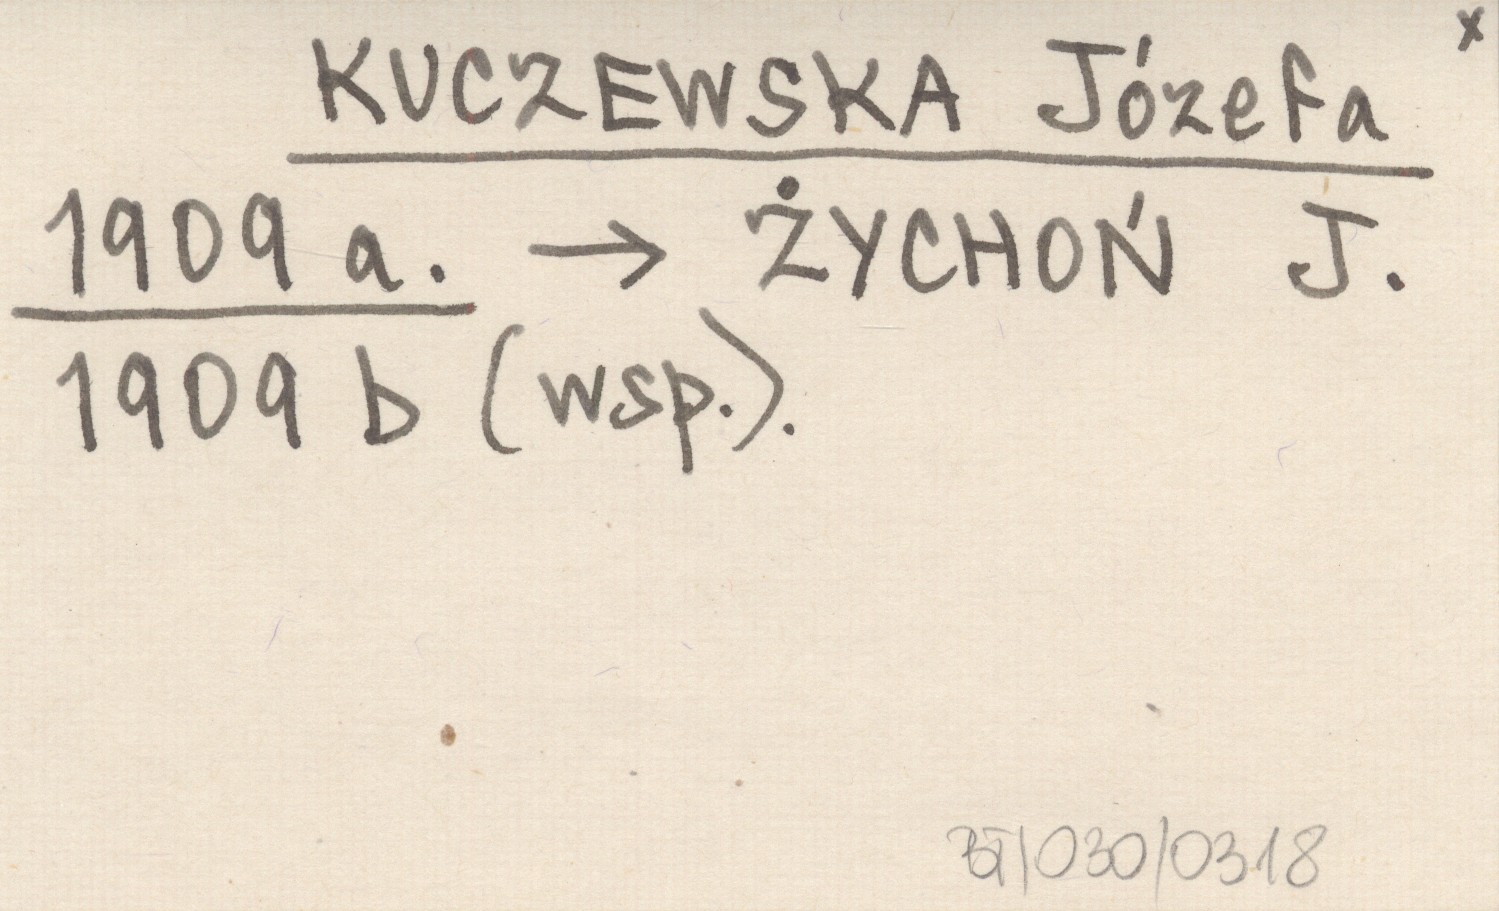 x
KUCZEWSKA Józefa
1909 a. → ŻYCHOŃ J.
1909 b (wsp.).
/030/0318